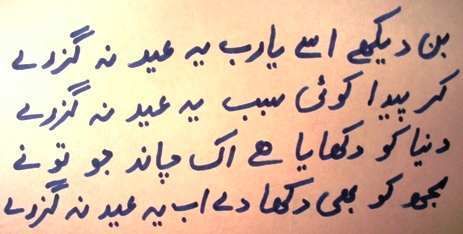 بن دیکھے اسے یارب یہ عید نہ گزرے
کر پیدا کوئی سبب یہ عید نہ گزرے
دنیا کو دکھایا ہے اک چاند جو تو نے
مجھ کو بھی دکھا دے اب یہ عید نہ گزرے